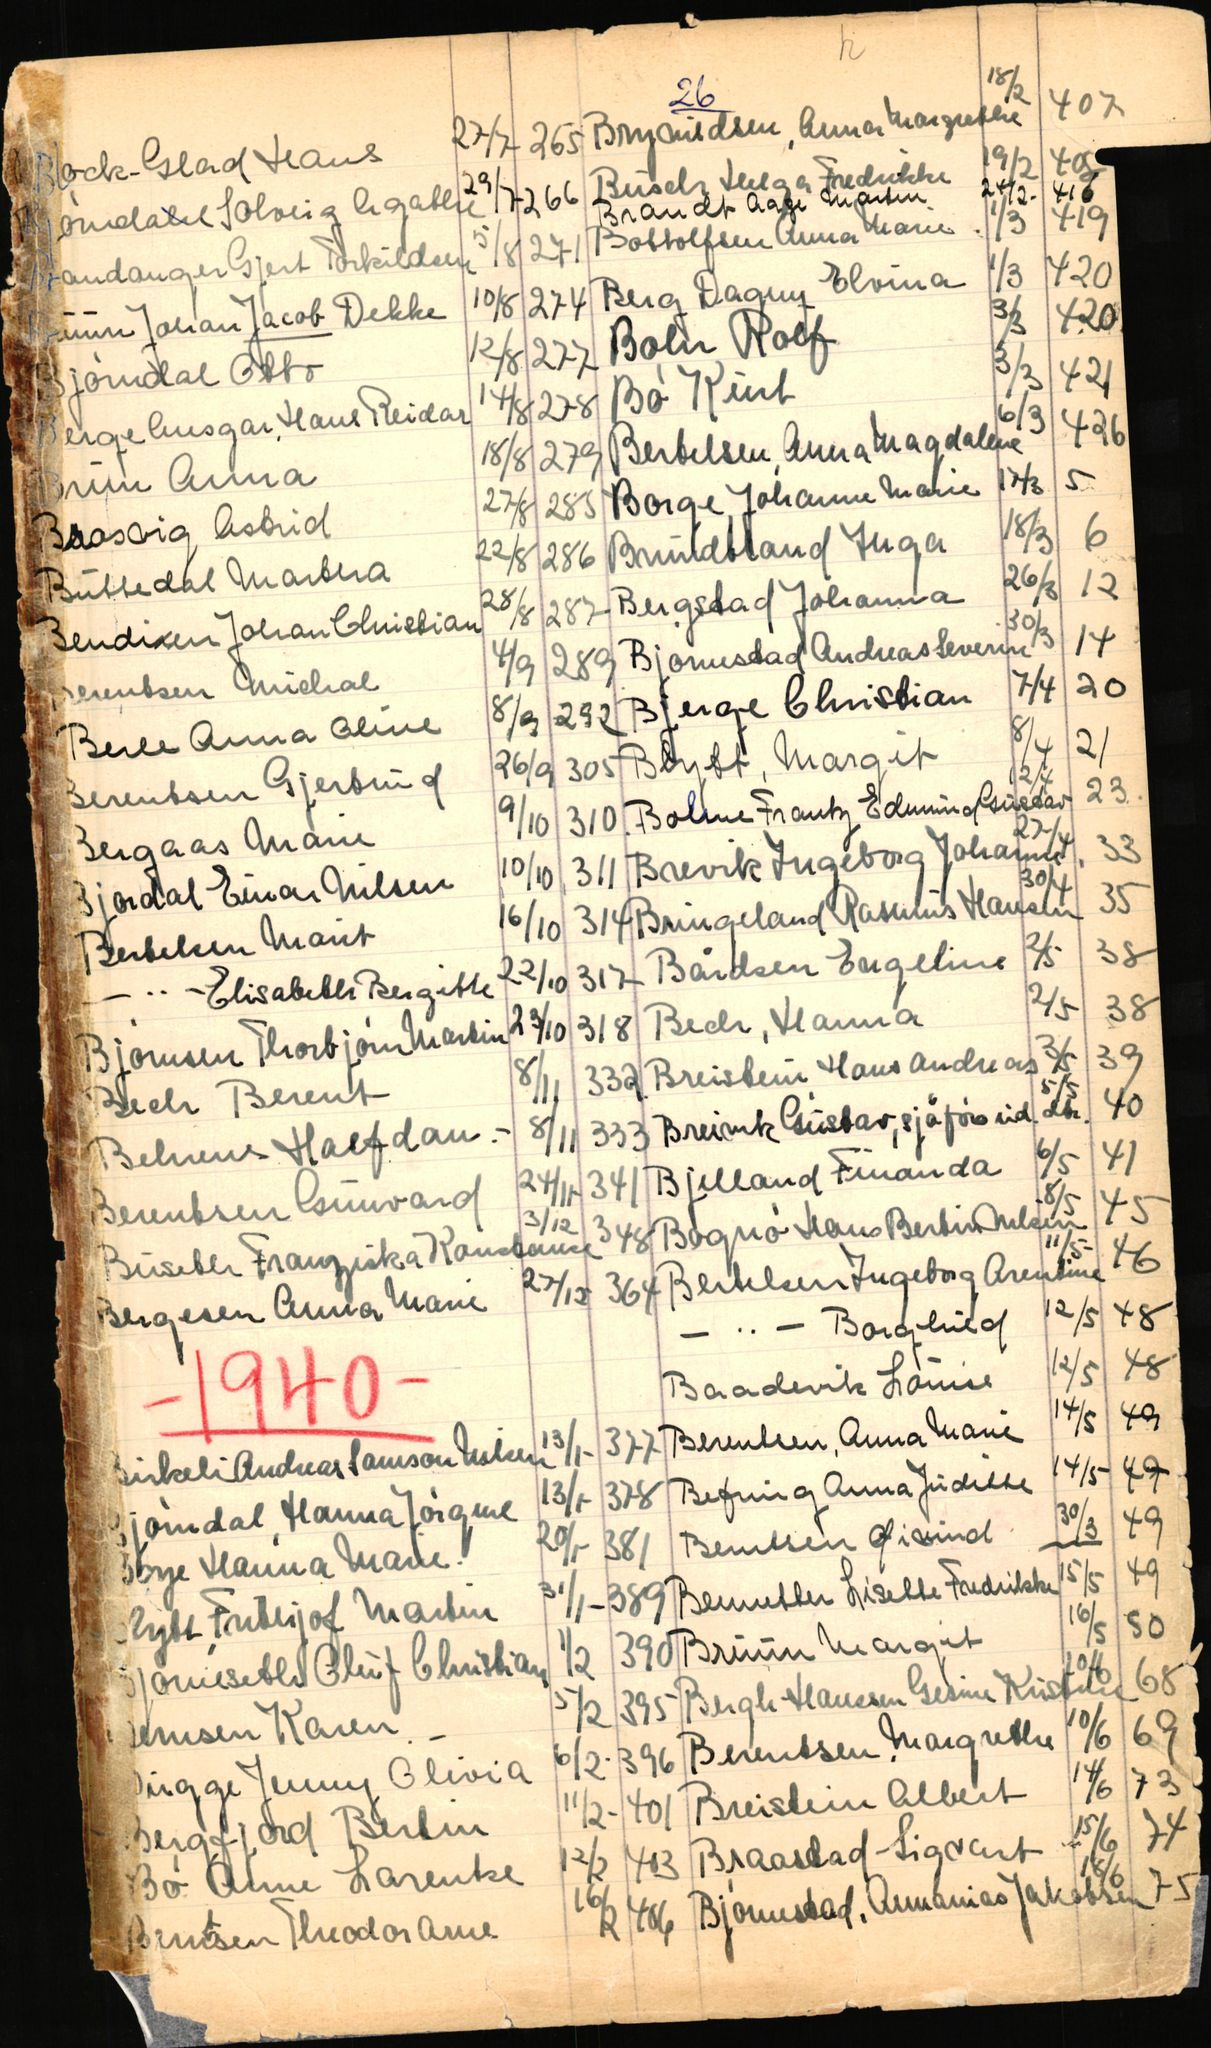 26
Bock-Glad Hans 27/7 265
Bjørndahl Solveig Agathe 29/7 266
Brandanger Gjert Torkildsen 5/8 271
Bruun Johan Jacob Dekke 10/8 274
Bjørndal Otto 12/8 277
Berge Ansgar, Hans Reidar 14/8 278
Brun Anna 18/8 279
Astrid 27/8 285
Büttedal Martera 22/8 286
Bendixen Johan Christian 28/8 287
Berentsen Michal 4/9 289
Berle Anna Oline 8/9 292
Berentsen Gjertrud 26/9 305
Bergaas Marie 9/10 310
Bjordal Einar Nilsen 10/10 311
Bertelsen Marit 16/10 314
— .. — Elisabeth Bergitte 22/10 317
Bjørnsen Thorbjørn Martin 23/10 318
Bech Berent 8/11 332
Behrens Halfdan. - 8/11 333
Berentsen Gunvard 24/11 341
Büseth Franziska Konstance 3/12 348
Bergesen Anna Marie 27/12 364
-1940-
Birkeli Andreas Samson Nilsen 13/1 377
Bjørndal, Hanna Jørgine 13/1 378
Borge Hanna Marie. 20/1 381
Blytt Frithjof Martin 31/1 389
Bjørneseth Oluf Christian 1/2 390
Berntsen Karen 5/2 395
Brügge Jenny Olivia 6/2 396
Bergfjord Bertin 11/2 401
Bø Anne Larentze 12/2 403
Berntsen Theodor Arne 16/2 406
Brynildsen, Anna Margrethe 18/2 407
Busch Helga Fredrikke 19/2 408
Brandt Aage Martin 24/2 416
Bottolfsen Anna Marie 1/3 419
Berg Dagny Elvina 1/3 420
Bohr Rolf 3/3 420
Bø Knut 3/3 421
Bertelsen, Anna Magdalene 6/3 426
Borge Johanne Marie 17/3 5
Brundtland Inga 18/3 6
Bergstad Johanna 26/3 12
Bjørnestad Andreas Severin 30/3 14
Bjerge Christian 7/4 20
Blytt, Margit 8/4 21
Bohne Frantz Edmund Gustav 12/4 23
Brevik Ingeborg Johanne 27/4 33
Bringeland Rasmus Hansen 30/4 35
Bårdsen Engeline 2/5 38
Bech, Hanna 2/5 38
Breistein Hans Andreas 3/5 39
Breivik Gustav, sjøforkl. dbr. 5/5 40
Bjelland Finanda 6/5 41
Bognø Hans Bertin Nilsen 8/5 45
Bertelsen Ingeborg Arentine 11/5 46
— .. — Borghild 12/5 48
Baadevik Louise 12/5 48
Berentsen, Anna Marie 14/5 49
Befring Anna Juditte 14/5 49
Berntsen Øivind 30/3 49
Bennetter Lisette Fredrikke 15/5 49
Bruun Margit 16/5 50
Bergh-Hanssen Gesine Kristine 10/6 68
Berentsen, Margrethe 10/6 69
Breistein Albert 14/6 73
Braastad Sigvart 15/6 74
Bjørnestad, Annanias Jakobsen 18/6 75